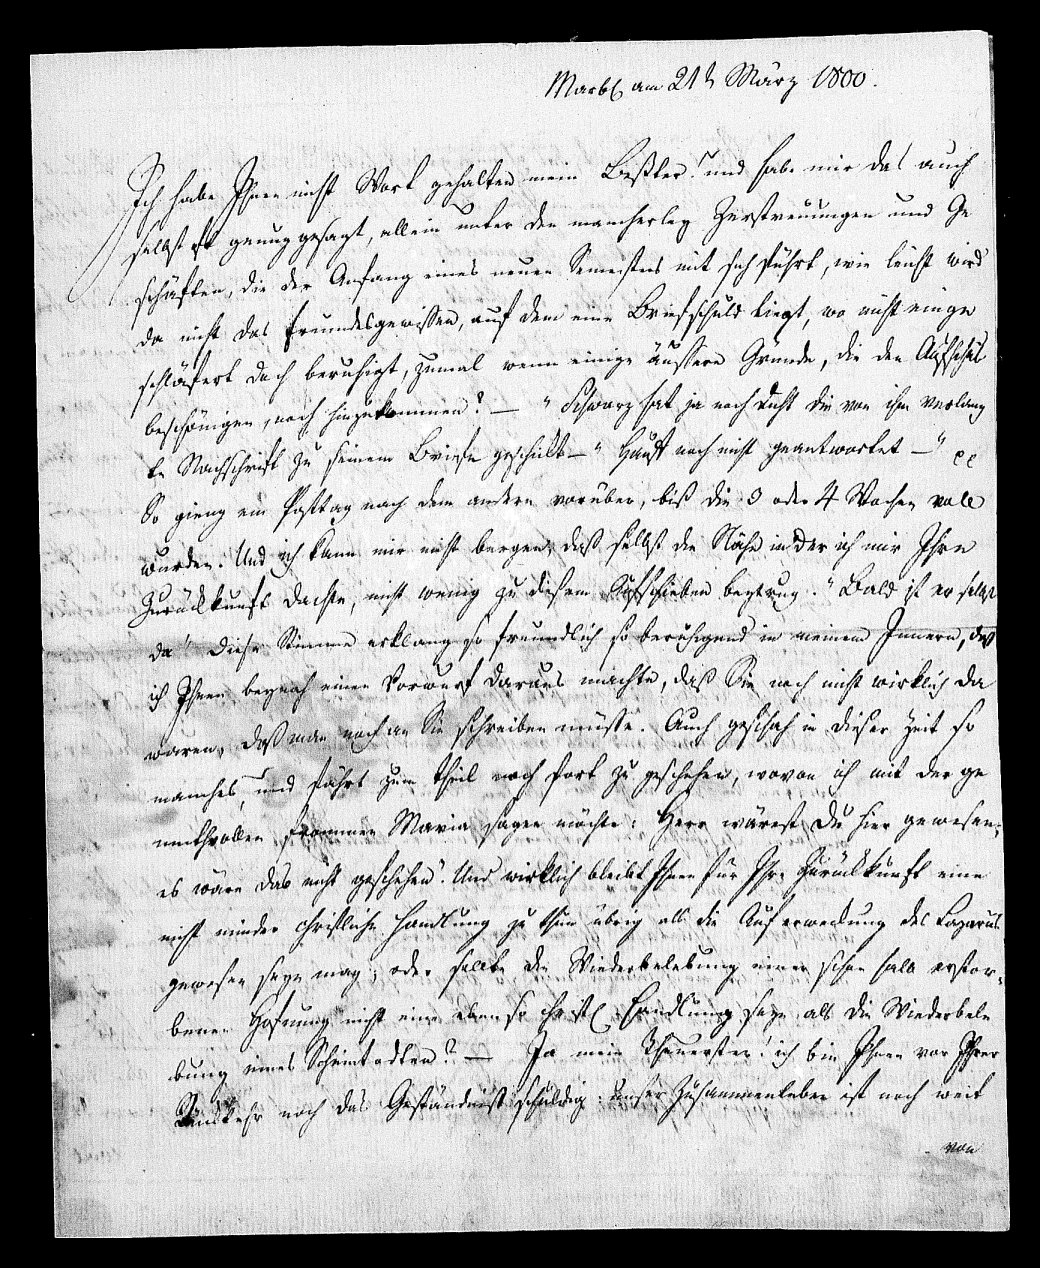 Marb. am 21t März 1800.
Ich habe Ihnen nicht Wort gehalten mein Bester! und habe mir das auch
selbst oft genug gesagt, allein unter den mancherley Zerstreuungen und Ge
schäften, die der Anfang eines neuen Semesters mit sich führt, wie leicht wird
da nicht das Freundesgewissen, auf dem eine Briefschuld liegt, wo nicht einge
schläfert doch beruhigt, zumal wenn einige äussere Gründe, die den Aufschub
beschönigen, noch hinzukommen? — "Schwarz hat ja noch nicht die von ihm verlang
te Nachschrift zu seinem Briefe geschickt —" noch nicht geantwortet —"
So gieng ein Posttag nach dem andern vorüber, biß die 3 oder 4 Wochen voll
wurden. Und ich kann mir nicht bergen, daß selbst die Nähe in der ich mir Ihre
Zurückkunft dachte, nicht wenig zu diesem Aufschieben beytrug. "Bald ist er selbst
da" diese Stimme erklang so freundlich so beruhigend in meinem Innern, daß
ich Ihnen beynah einen Vorwurf daraus machte, daß Sie noch nicht wirklich da
waren, daß man noch an Sie schreiben müsse. Auch geschah in dieser Zeit so
manches, und fährt zum Theil noch fort zu geschehen, wovon ich mit der ge
müthvollen frommen Maria sagen möchte: Herr wärest Du hier gewesen,
es wäre das nicht geschehen". Und wirklich bleibt Ihnen für Ihre Zurückkunft eine
nicht minder christliche Handlung zu thun übrig als die Auferweckung des Lazarus
gewesen seyn mag; oder sollte die Wiederbelebung einer schon halb erstor-
benen Hofnung nicht eine eben so christl. Handlung seyn als die Wiederbele
bung eines Scheintodten? — Ja mein Theuerster! ich bin Ihnen vor Ihrer
Rückkehr noch das Geständniß schuldig: unser Zusammenleben ist noch weit
von